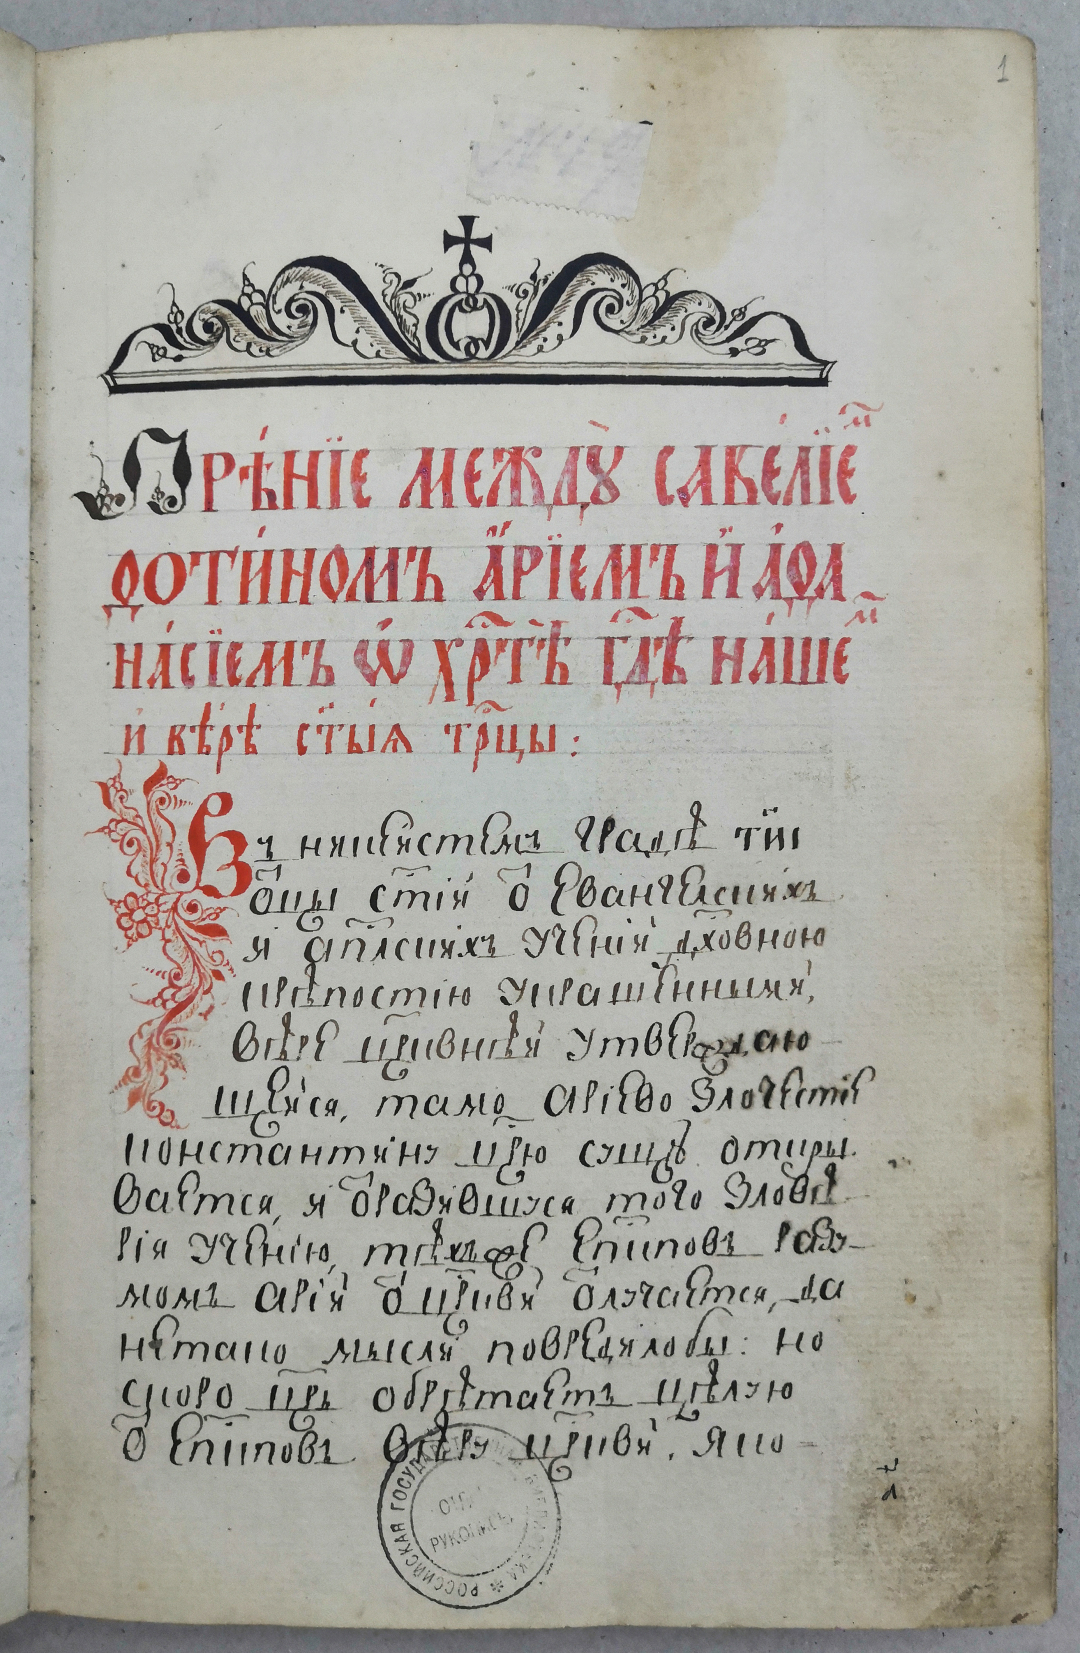 1
Прѣ́нїе междꙋ̀ саве́лїем̾
ѳоти́номъ а҆́рїемъ и҆ а҆ѳа
на́сїемъ ѡ҆ хрⷭ҇тѣ гдⷭ҇ѣ на́шем̾
и҆ вѣ́рѣ ст҃ы́ѧ трⷪ҇цы :
Въ никейстемъ градѣ тїи
ѿцы ст҃їи ѿ Евангелскихъ
и ап҃лскихъ ученїй дх҃овною
крѣпостїю украшенными,
вѣре цр҃ковнѣй утвержаю
щейся, тамо арїево злочестїе
константину цр҃ю сущꙋ откры
вается, и ѿразившуся того зловѣ
рїя ученїю, тѣхъже еп҃пковъ разу
момъ арїй ѿ цр҃кви ѿлучается, да
нетако мысли повредилобы: но
скоро цр҃ь обрѣтаетъ цѣлую
ѿ еп҃пковъ вѣру цр҃кви, яко
РОССИЙСКАЯ ГОСУДАРСТВЕННАЯ БИБЛИОТЕКА
ОТДЕЛ
РУКОПИСЕЙ